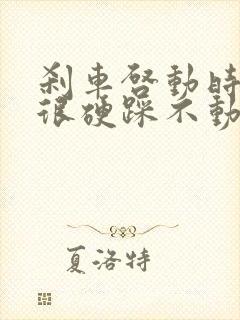 刹車啓動時
很硬踩不動
夏洛特